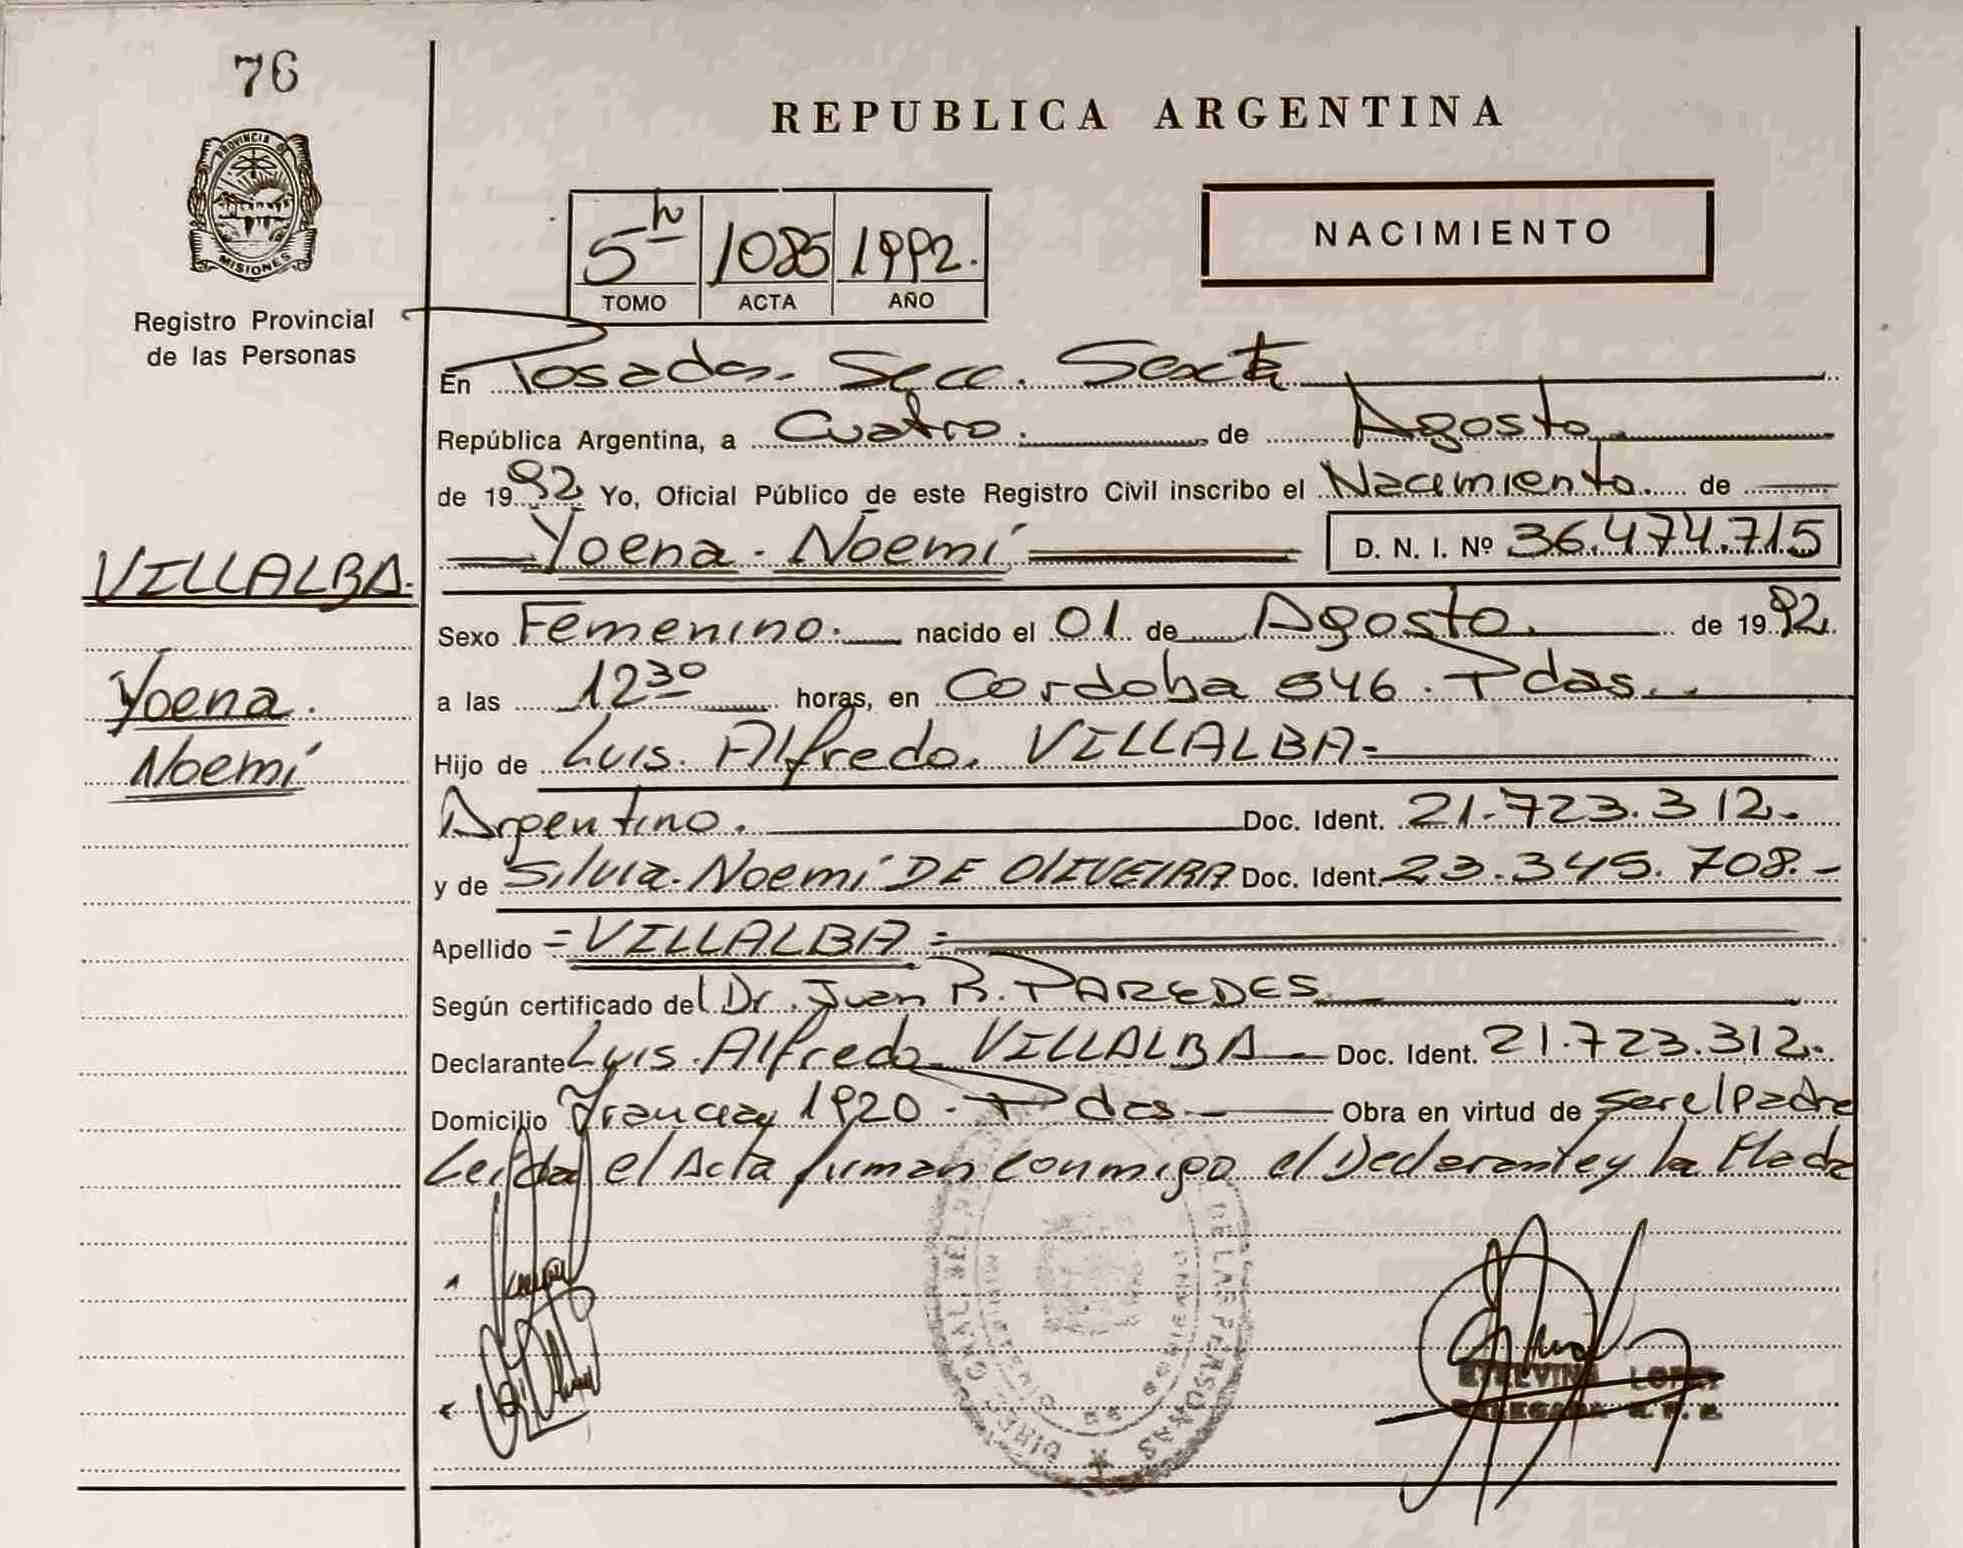 76
REPUBLICA ARGENTINA
PROVINCIA DE
MISIONES
Registro Provincial
de las Personas
5º 1085 1992.
TOMO ACTA AÑO
NACIMIENTO
En Posadas. Secc. Sexta
República Argentina, a Cuatro. de Agosto
de 1992 Yo, Oficial Público de este Registro Civil inscribo el Nacimiento. de
Yoena. Noemí D. N. I. Nº 36.474.715
VILLALBA.
Yoena.
Noemí
Sexo Femenino. nacido el 01 de Agosto. de 1992.
a las 12 30 horas, en Cordoba 546. Pdas.
Hijo de Luis. Alfredo. VILLALBA=
Argentino. Doc. Ident. 21.723.312.
y de Silvia. Noemí DE OLIVEIRA Doc. Ident. 23.345.708.-
Apellido =VILLALBA=
Según certificado del Dr. Juan R. PAREDES
Declarante Luis. Alfredo VILLALBA Doc. Ident. 21.723.312.
Domicilio 1920. Pdas Obra en virtud de ser el Padre
Leída el Acta firman conmigo el Declarante y la Madre
DE LAS PERSONAS
LOPEZ
DELEGADA R. P. P.